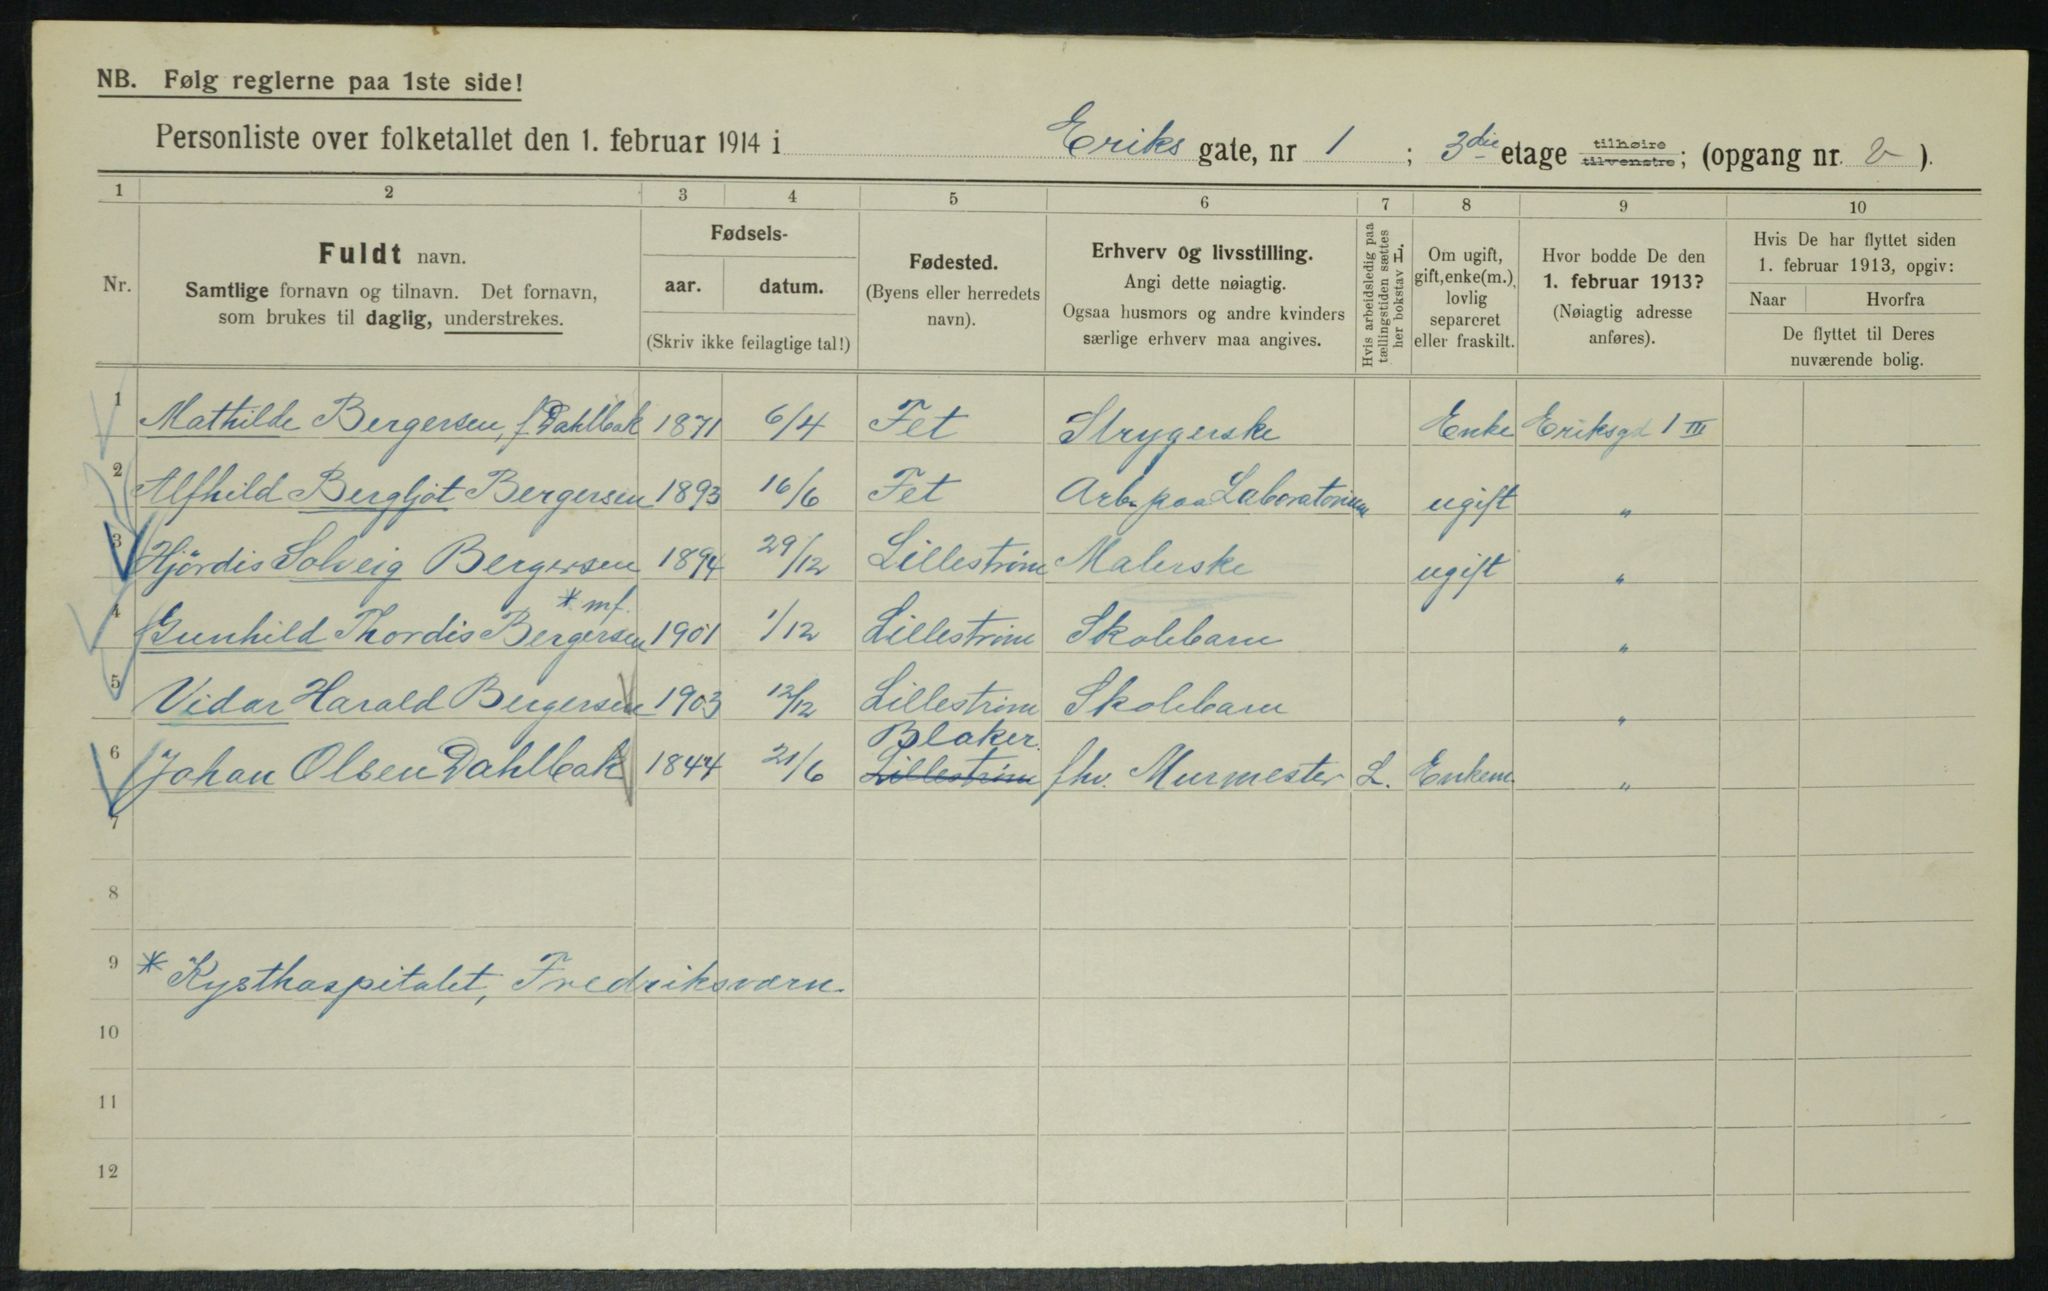 NB. Følg reglerne paa 1ste side!
Personliste over folketallet den 1. februar 1914 i Eriks gate, nr 1 ; 3die etage tilhøire tilvenstre; (opgang nr. v ).
1 2 3 4 5 6 7 8 9 10
Nr.
Fuldt navn.
Samtlige fornavn og tilnavn. Det fornavn,
som brukes til daglig, understrekes.
Fødsels-
aar. datum.
(Skriv ikke feilagtige tal!)
Fødested.
(Byens eller herredets
navn).
Erhverv og livsstilling.
Angi dette nøiagtig.
Ogsaa husmors og andre kvinders
særlige erhverv maa angives.
Hvis arbeidsledig paa
tællingstiden sættes
her bokstav L.
Om ugift,
gift, enke(m.),
lovlig
separeret
eller fraskilt.
Hvor bodde De den
1. februar 1913?
(Nøiagtig adresse
anføres).
Hvis De har flyttet siden
1. februar 1913, opgiv:
Naar Hvorfra
De flyttet til Deres
nuværende bolig.
1 Mathilde Bergersen, f Dahlbak 1871 6/4 Fet Strygerske Enke Eriksgd 1 III
2 Alfhild Bergljot Bergersen 1893 16/6 Fet Arb. paa Laboratorium ugift "
3 Hjördis Solveig Bergersen 1894 29/12 Lillestrøm Malerske ugift "
* mf.
4 Gunhild Thordis Bergersen 1901 1/12 Lillestrøm Skolebarn "
5 Vidar Harald Bergersen 1903 12/12 Lillestrøm Skolebarn "
Blaker.
6 Johan Olsen Dahlbak 1844 21/6 Lillestrøm fhv. Murmester L. Enkem. "
7
8
9 * Kysthospitalet, Fredriksværn.
10
11
12